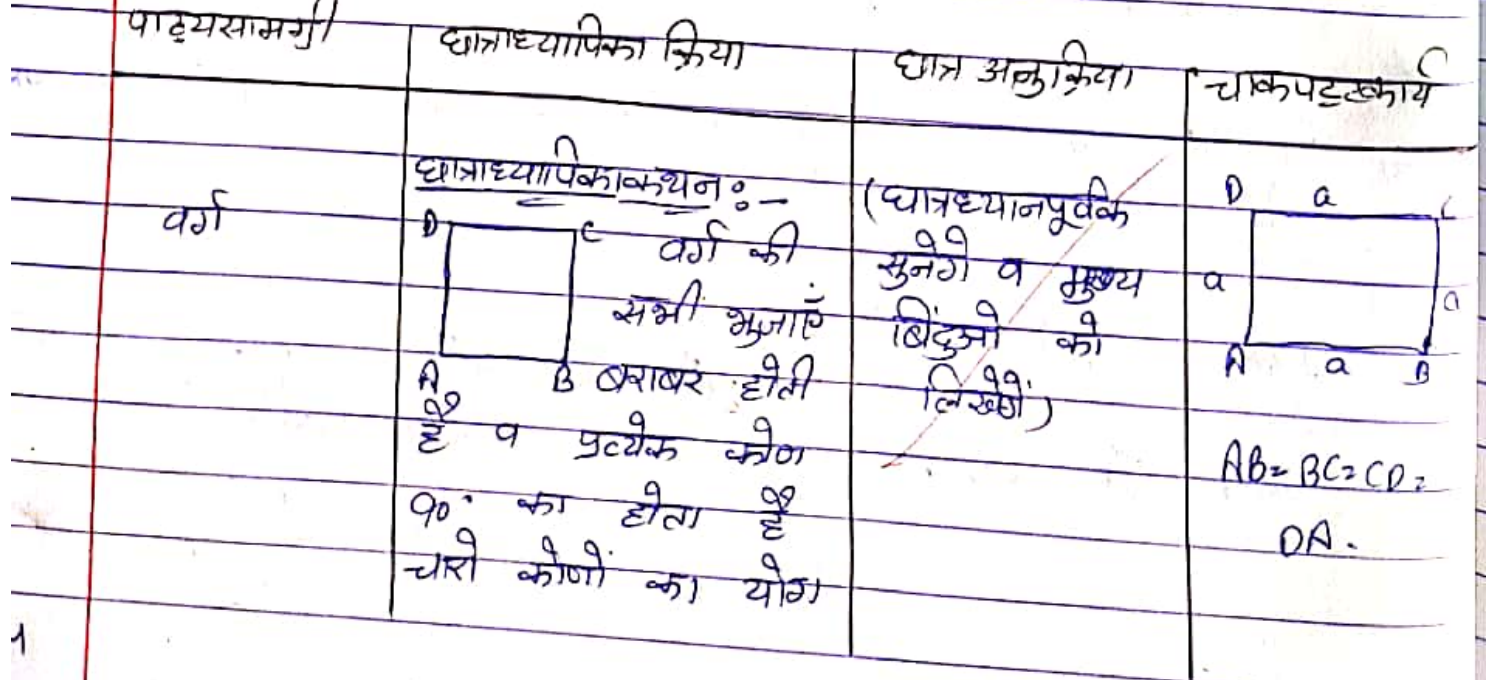 पाठ्यसामग्री
छात्राध्यापिका क्रिया
छात्र अनुक्रिया
चाकपट्टकार्य
वर्ग
छात्राध्यापिकाकथन :-
D C वर्ग की
सभी भुजाएँ
A B बराबर होती
है व प्रत्येक कोण
90° का होता है
चारो कोणों का योग
(छात्रध्यानपूर्वक
सुनेगे व मुख्य
बिंदुओ को
लिखेगें)
D a C
a a
A a B
AB = BC = CD =
DA.